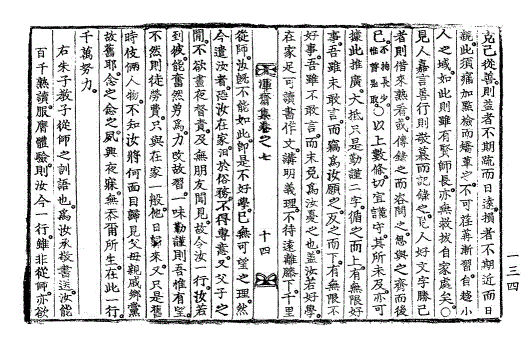 克己從善則益者不期疏而日遠損者不期近而日
親此須痛加點檢而矯革之不可荏苒漸習自趨小
人之域如此則雖有賢師長亦無救拔自家處矣○
見人嘉言善行則敬慕而記錄之見人好文字勝己
者則借來熟看或傳錄之而咨問之思與之齊而後
已不拘長少惟善是取○以上數條切宜謹守其所未及亦可
據此推廣大抵只是勤謹二字循之而上有無限好
事吾雖未敢言而竊爲汝願之反之而下有無限不
好事吾雖不敢言而未免爲汝憂之也蓋汝若好學
在家足可讀書作文講明義理不待遠離膝下千里
齋集卷之七
十四
從師汝旣不能如此卽是不好學已無可望之理然
今遣汝者恐汝在家汩於俗務不得專意又父子之
間不欲晝夜督責及無朋友聞見故令汝一行汝若
到彼能奮然勇爲力改故習一味勤謹則吾惟有望
不然則徒勞費只與在家一般他日歸來又只是舊
時伎倆人物不知汝將何面目歸見父母親戚鄉黨
故舊耶念之念之夙興夜寐無忝爾所生在此一行
千萬努力
右朱子敎子從師之訓語也爲汝承敎書送汝能
百千熟讀服膺體驗則汝今一行雖非從師亦欲
一三四